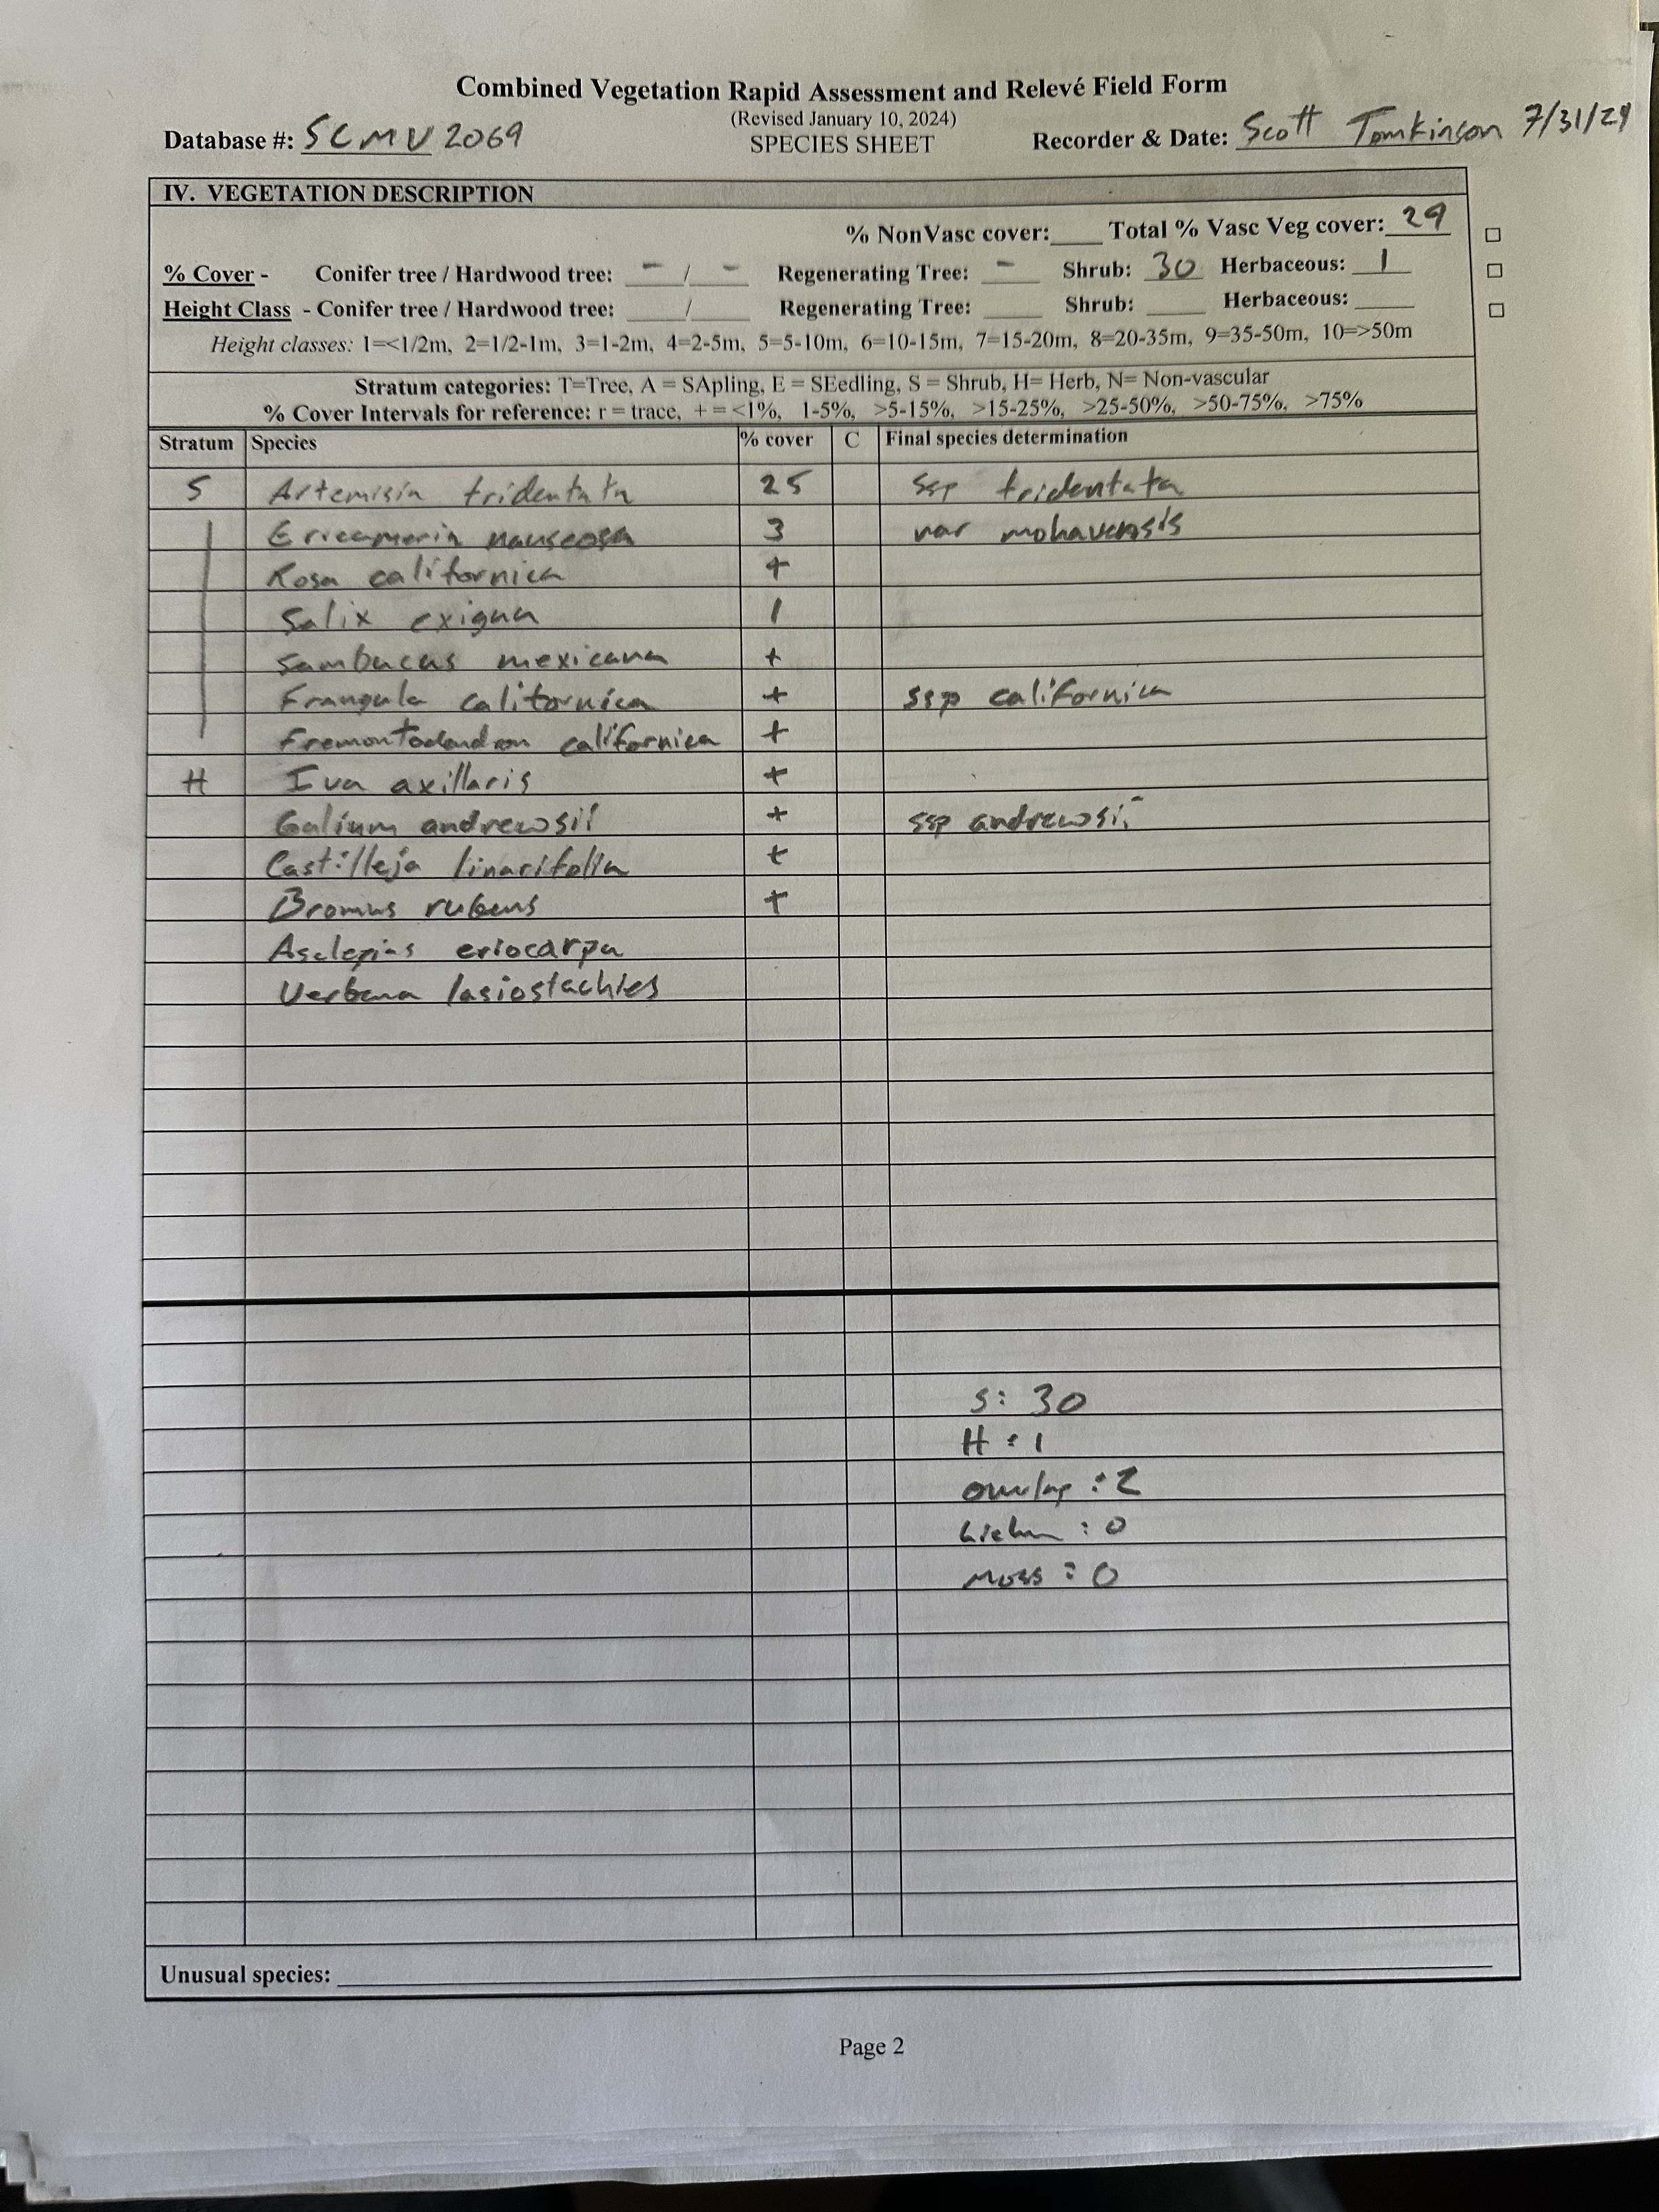 Combined Vegetation Rapid Assessment and Relevé Field Form
(Revised January 10, 2024)
Database #: SCMV2069 SPECIES SHEET Recorder & Date: Scott Tomkinson 7/31/24
IV. VEGETATION DESCRIPTION
% NonVasc cover:____ Total % Vasc Veg cover: 29
% Cover - Conifer tree / Hardwood tree: - / - Regenerating Tree: - Shrub: 30 Herbaceous: 1
Height Class - Conifer tree / Hardwood tree: ____/____ Regenerating Tree: ____ Shrub: ____ Herbaceous: ____
Height classes: 1=<1/2m, 2=1/2-1m, 3=1-2m, 4=2-5m, 5=5-10m, 6=10-15m, 7=15-20m, 8=20-35m, 9=35-50m, 10=>50m
Stratum categories: T=Tree, A = SApling, E = SEedling, S = Shrub, H= Herb, N= Non-vascular
% Cover Intervals for reference: r = trace, + = <1%, 1-5%, >5-15%, >15-25%, >25-50%, >50-75%, >75%
Stratum Species % cover C Final species determination
S Artemisia tridentata 25 ssp tridentata
Ericameria nauseosa 3 var mohavensis
Rosa californica +
Salix exigua 1
Sambucus mexicana +
Frangula californica + ssp californica
Fremontodendron californica +
H Iva axillaris +
Galium andrewsii + ssp andrewsii
Castilleja linarifolia +
Bromus rubens +
Asclepias eriocarpa
Verbena lasiostachies
S: 30
H: 1
overlap: 2
Lichen: 0
Moss: 0
Unusual species:
Page 2